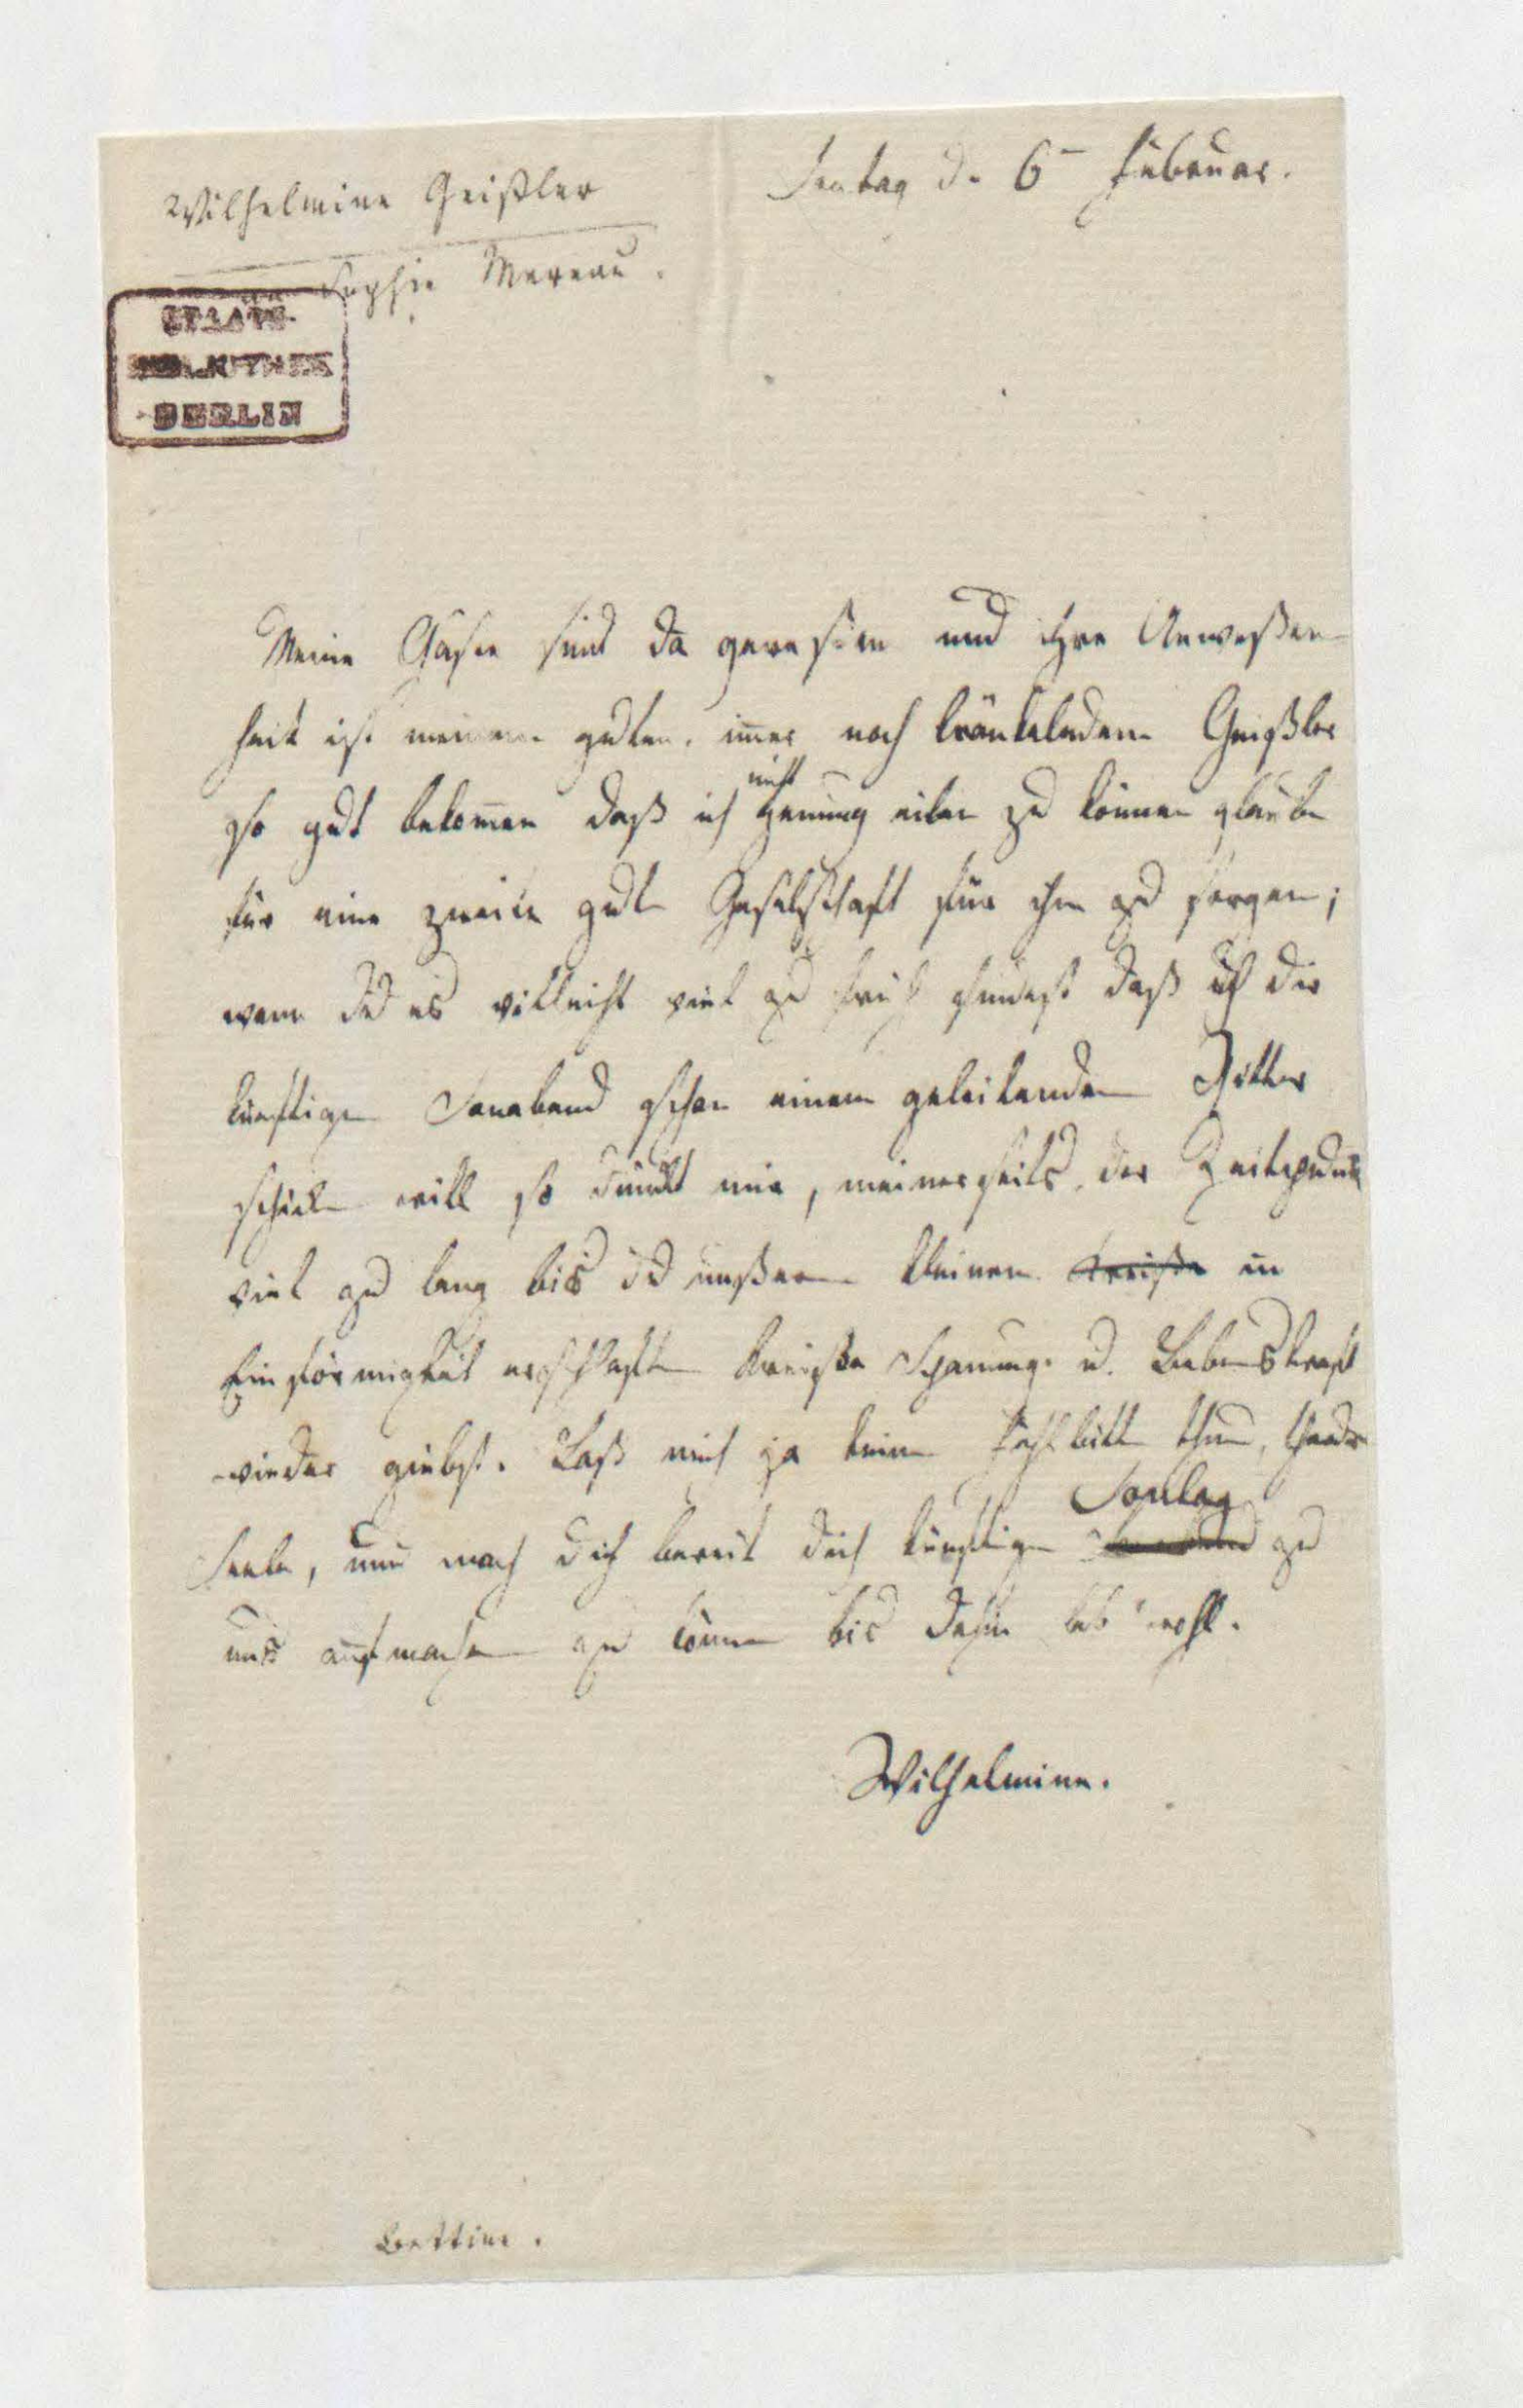 Wilhelmine Geißler
Sontag d. 6 Februar.
an Sophie Mereau.
STAATS-
BIBLIOTHEK
BERLIN
Meine Gäste sind da geweßen und ihre Anweßen-
heit ist meinem guten, im̅er noch kränkelnden Geißler
so gut bekom̅en daß ich nicht genung eilen zu können glaube
für eine zweite gute Geselschaft für ihn zu sorgen;
wenn du es villeicht viel zu früh findest daß ich dir
künftigen Sonabend schon einem geleitenden Ritter
schicken will so dünckt mir, meinerseits der Zeitpunckt
viel zu lang bis du unßerm kleinen Kreiße in
Einförmigkeit erschlaften Kreiße Spannung u. Lebenskraft
wieder giebst. Laß mich ja keine Fehlbitte thun, theure
Seele, und mach dich bereit dich künftigen Sontag zu
uns aufmachen zu können bis dahin leb' wohl.
Wilhelmine.
Bettine.